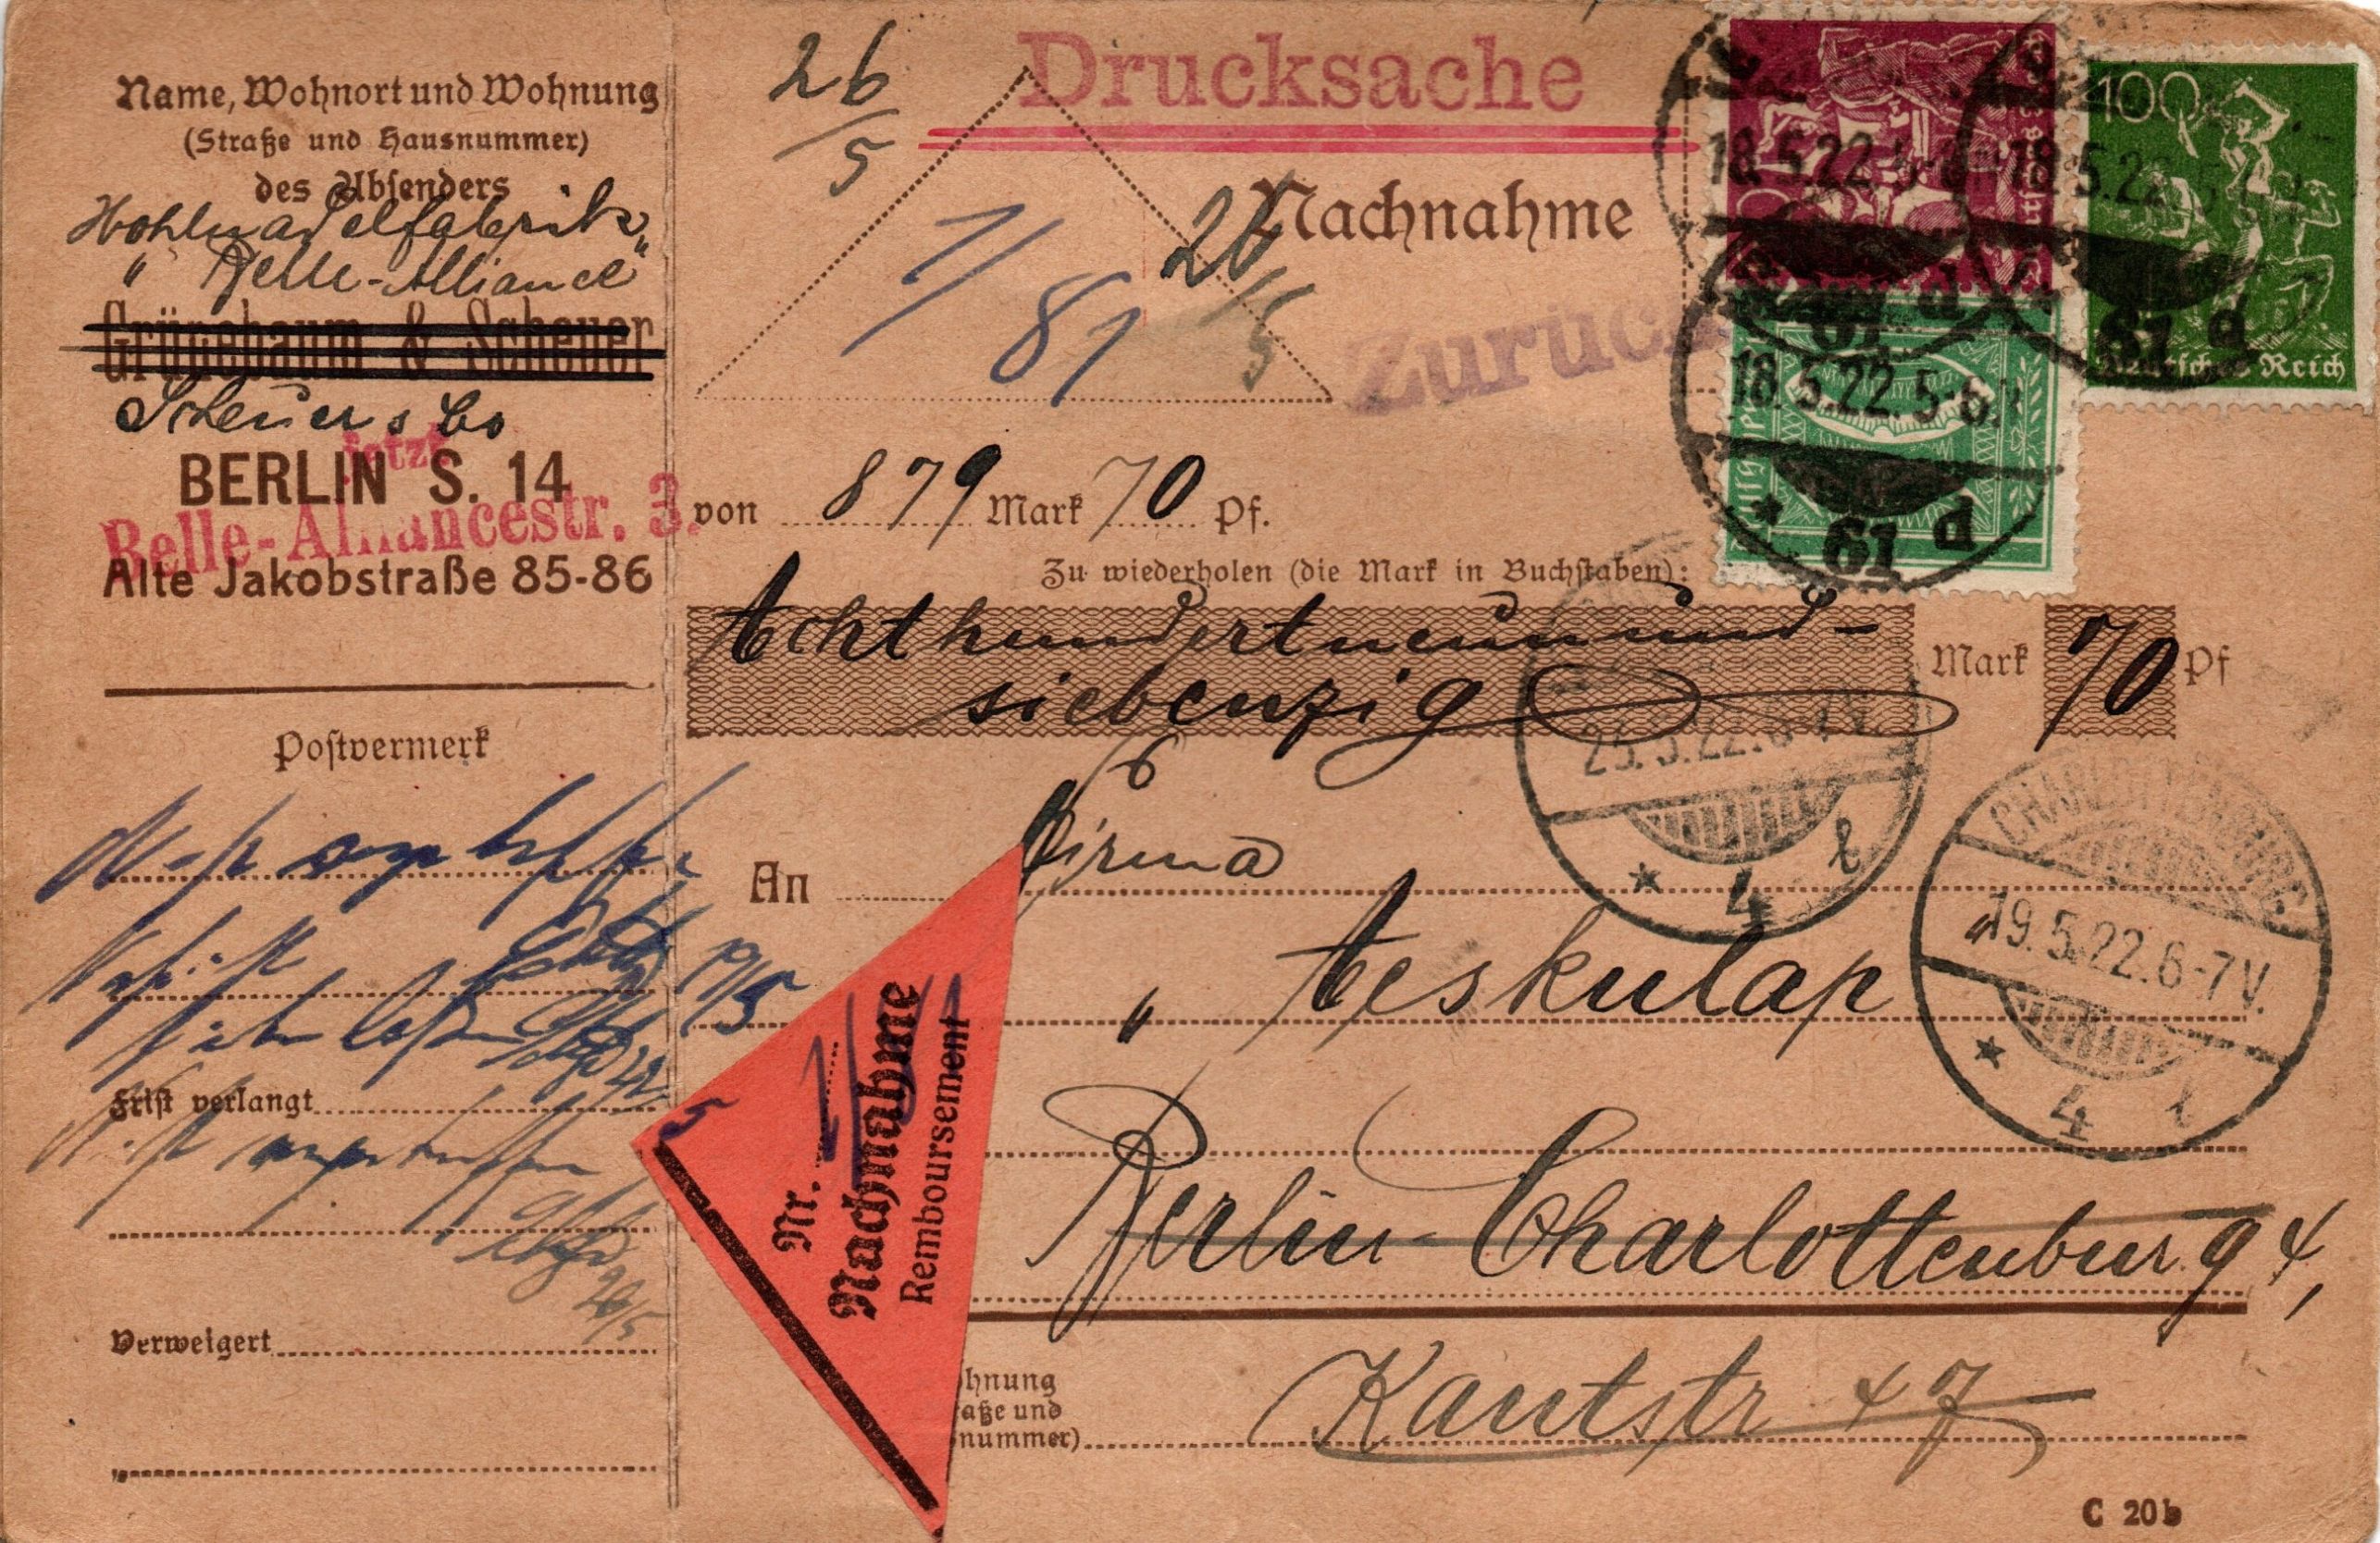 Name, Wohnort und Wohnung
(Straße und Hausnummer)
des Absenders
Hohlnadelfabrik
„Belle-Alliance"
Grünebaum & Scheuer
Scheuer & Co
jetzt
BERLIN S. 14
Belle-Alliancestr. 3.
Alte Jakobstraße 85-86
Postvermerk
19/5
22/5
Frist verlangt
26/5
Verweigert
26/5
Drucksache
Nachnahme
26/5
1/81
Zurück
von 879 Mark 70 Pf.
Zu wiederholen (die Mark in Buchstaben):
Achthundertneunund-
siebenzig Mark 70 Pf
An Firma
„Aeskulap"
Berlin-Charlottenburg 4,
Kantstr 47
hnung
aße und
nummer)
Nr.
Nachnahme
Remboursement
C 20b
100
Deutsches Reich
18.5.22. 5-6
61 d
18.5.22. 5-6
61 d
18.5.22. 5-6
61 d
25.5.22.
4 l
CHARLOTTENBURG
19.5.22.6-7V.
4 l